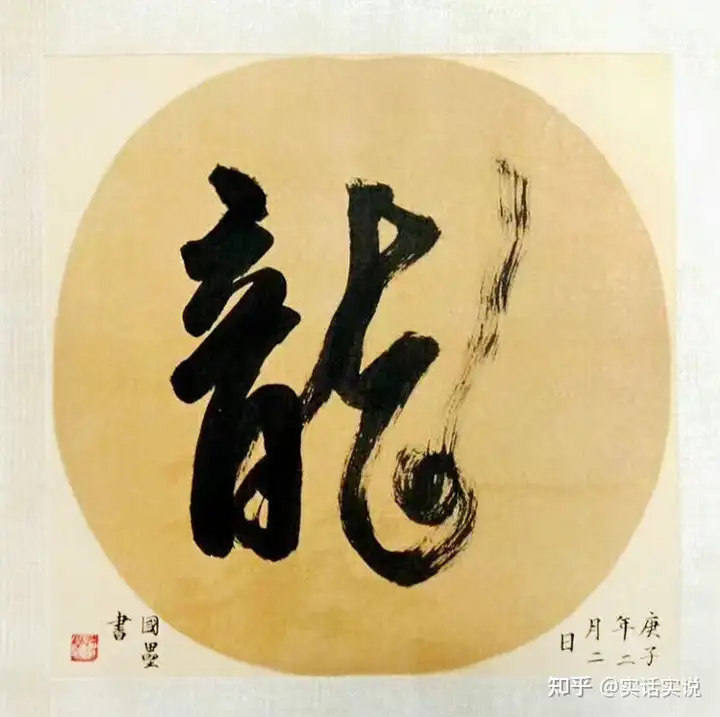 龍
庚子
年二
月二
日
國墨
書
知乎 @实话实说